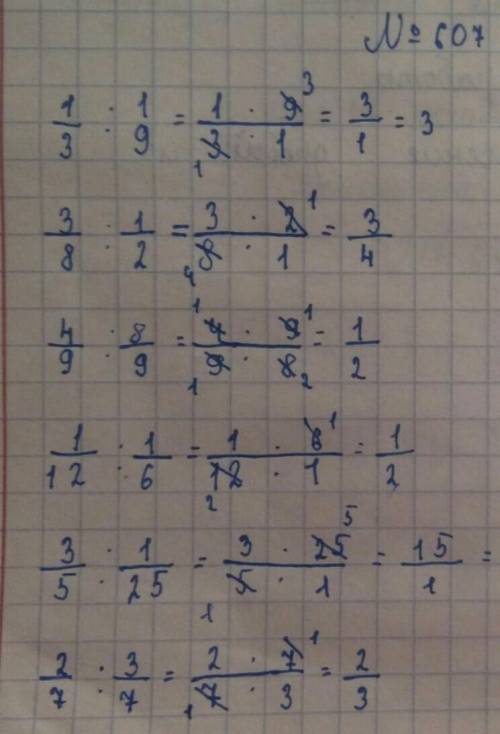 № 607
1/3 : 1/9 = 1 · 9 3 / 1 3 · 1 = 3/1 = 3
3/8 : 1/2 = 3 · 2 1 / 4 8 · 1 = 3/4
4/9 : 8/9 = 1 4 · 9 1 / 1 9 · 8 2 = 1/2
1/12 : 1/6 = 1 · 6 1 / 2 12 · 1 = 1/2
3/5 : 1/25 = 3 · 25 5 / 1 5 · 1 = 15/1 =
2/7 : 3/7 = 2 · 7 1 / 1 7 · 3 = 2/3